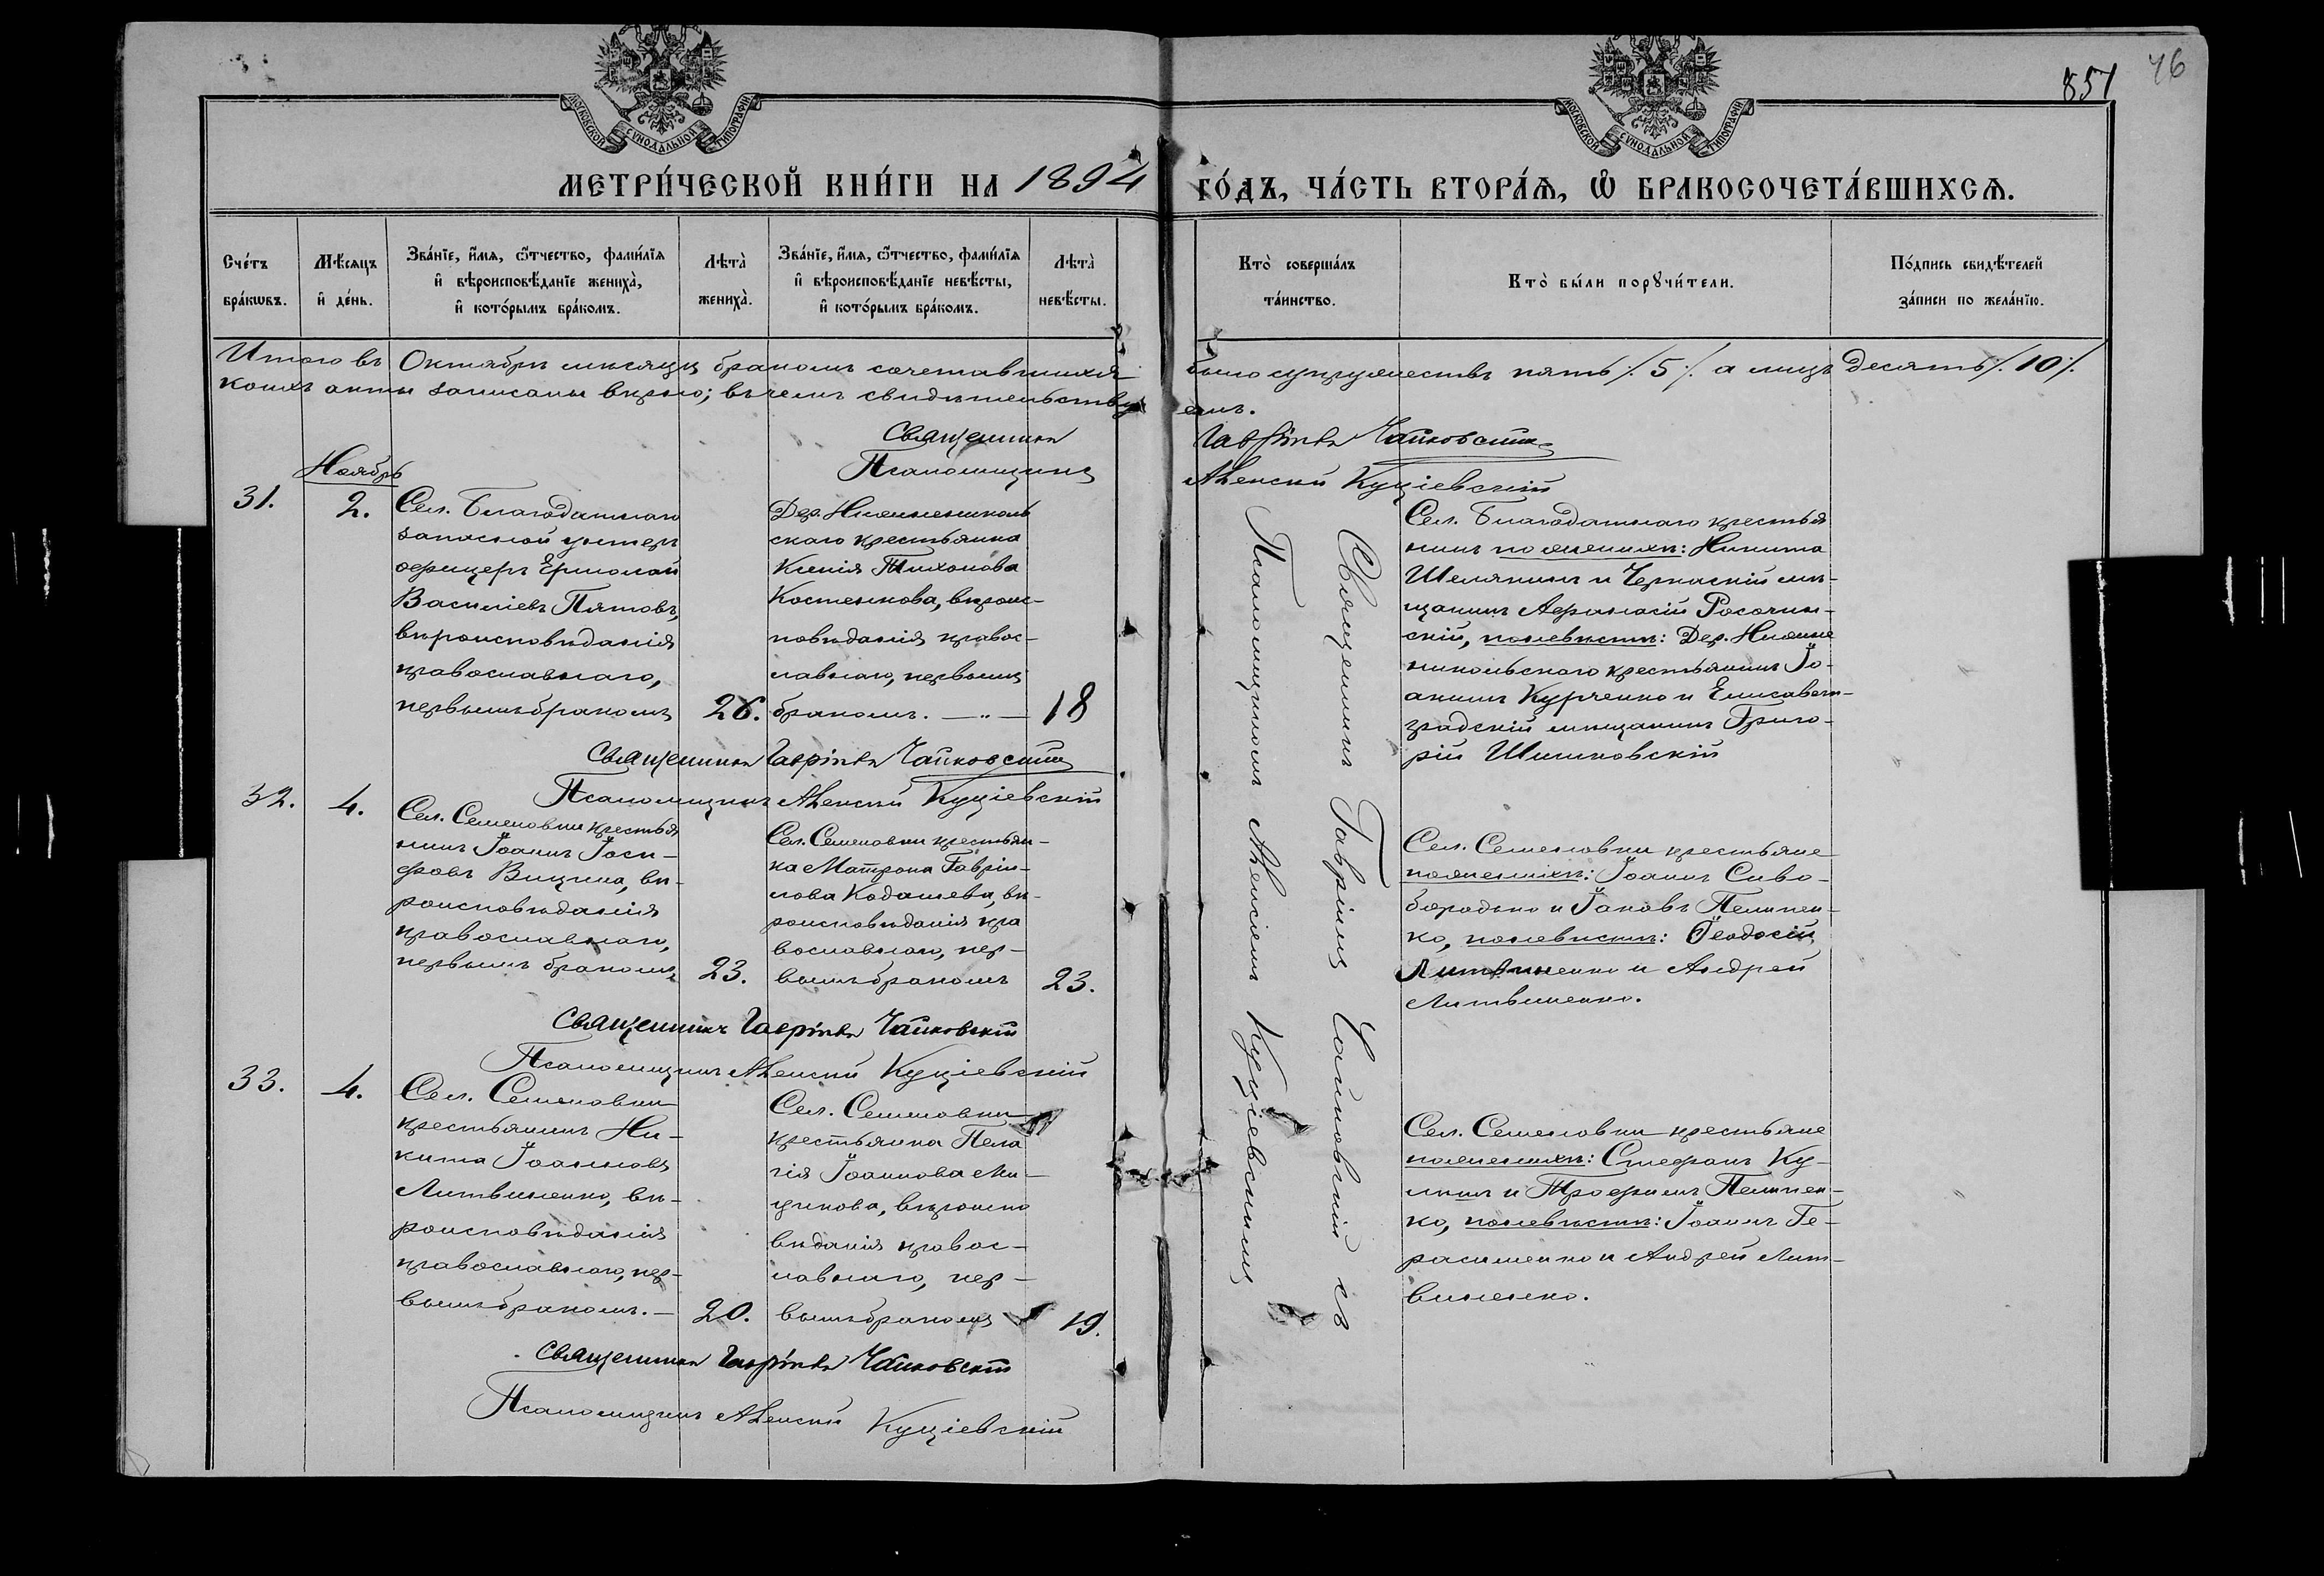 851 46
МОСКОВСКОЙ СУНОДАЛЬНОЙ ТИПОГРАФІИ
МОСКОВСКОЙ СУНОДАЛЬНОЙ ТИПОГРАФІИ
МЕТРИ́ЧЕСКОЙ КНИ́ГИ НА 1894 ГО́ДЪ, ЧА́СТЬ ВТОРА́Ѧ, Ѿ БРАКОСОЧЕТА́ВШИХСѦ.
Сче́тъ
бра́кѡвъ.
Мѣ́сяцъ
и҆ де́нь.
Зва́нїе, и҆́мя, ѻ҆́тчество, фами́лїя
и҆ вѣроисповѣ́данїе жениха̀,
и҆ кото́рымъ бра́комъ.
Лѣта̀
жениха̀.
Зва́нїе, и҆́мя, ѻ҆́тчество, фами́лїя
и҆ вѣроисповѣ́данїе невѣ́сты,
и҆ кото́рымъ бра́комъ.
Лѣта̀
невѣ́сты.
Кто̀ соверша́лъ
та́инство.
Кто̀ бы́ли порꙋчи́тели.
По́дпись свидѣ́телей
за́писи по жела́нїю.
Итого въ Октябрѣ мѣсяцѣ бракомъ сочетавшихся было супружествъ пять /. 5 ./. а лицъ десять /. 10 /.
коихъ акты записаны вѣрно; въ чемъ свидѣтельству емъ.
Священникъ Гавріилъ Чайковскій
Псаломщикъ Алексій Куціевскій
Ноябрь
31.
2.
Сел. Благодатнаго
запасной унтеръ
офицеръ Ермолай
Василіевъ Пятовъ,
вѣроисповѣданія
православнаго,
первымъ бракомъ
26.
Дер. Нижнениколь
скаго крестьянка
Ксенія Тихонова
Костенкова, вѣроис-
повѣданія правос-
лавнаго, первымъ
бракомъ. —"—
18
Священникъ Гавріилъ Чайковскій съ
Псаломщикомъ Алексіемъ Куціевскимъ
Сел. Благодатнаго крестья
нинъ по женихѣ: Никита
Шелякинъ и Черкаскій мѣ-
щанинъ Афанасій Росочин-
скій, по невѣстѣ: Дер. Нижне
никольскаго крестьянинъ Іо-
акимъ Курченко и Елисавет-
градскій мѣщанинъ Григо-
рій Шишковскій
Священникъ Гавріилъ Чайковскій
Псаломщикъ Алексій Куціевскій
32.
4.
Сел. Семеновки крестья
нинъ Іоаннъ Іоси-
фовъ Вицина, вѣ-
роисповѣданія
православнаго,
первымъ бракомъ
23.
Сел. Семеновки крестьян-
ка Матрона Гаврии-
лова Кодашева, вѣ-
роисповѣданія пра
вославнаго, пер-
вымъ бракомъ
23.
Сел. Семеновки крестьяне
по женихѣ: Іоаннъ Сиво-
бородько и Іаковъ Пелипен-
ко, по невѣстѣ: Ѳеодосій
Литвиненко и Андрей
Литвиненко.
Священникъ Гавріилъ Чайковскій
Псаломщикъ Алексій Куціевскій
33.
4.
Сел. Семеновки
крестьянинъ Ни-
кита Іоанновъ
Литвиненко, вѣ-
роисповѣданія
православнаго, пер-
вымъ бракомъ. —
20.
Сел. Семеновки
крестьянка Пела
гія Іоаннова Ми-
вѣроиспо
вѣданія правос-
лавнаго, пер-
вымъ бракомъ
19.
Сел. Семеновки крестьяне
по женихѣ: Стефанъ Ку-
и Трофимъ Пелипен-
ко, по невѣстѣ: Іоаннъ Ге-
расименко и Андрей Лит-
виненко.
Священникъ Гавріилъ Чайковскій
Псаломщикъ Алексій Куціевскій